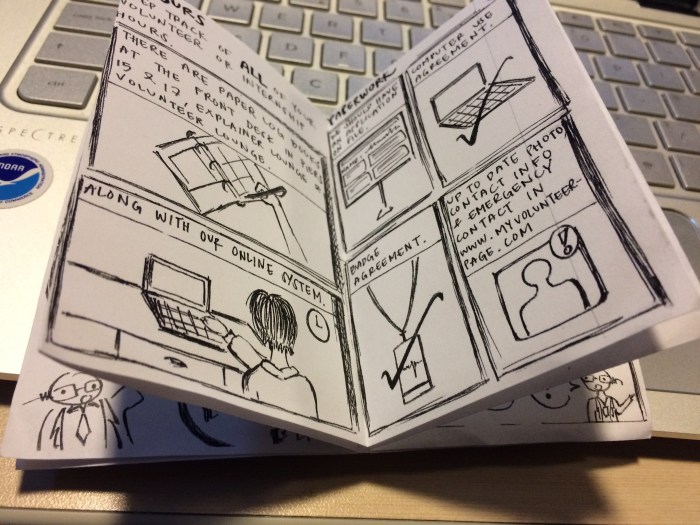 OURS
TRACK OF ALL OF YOUR
VOLUNTEER OR INTERNSHIP
HOURS.
THERE ARE PAPER LOG BOOKS
AT THE FRONT DESK IN PIERS
15 & 17, EXPLAINER LOUNGE &
VOLUNTEER LOUNGE.
ALONG WITH OUR ONLINE SYSTEM.
PAPERWORK
SHOULD HAVE
AN APPLICATION
ON FILE.
COMPUTER USE
AGREEMENT.
BADGE
AGREEMENT.
UP TO DATE PHOTO
CONTACT INFO
& EMERGENCY
CONTACT IN
WWW.MYVOLUNTEER-
PAGE.COM
SPECTRE
NOAA